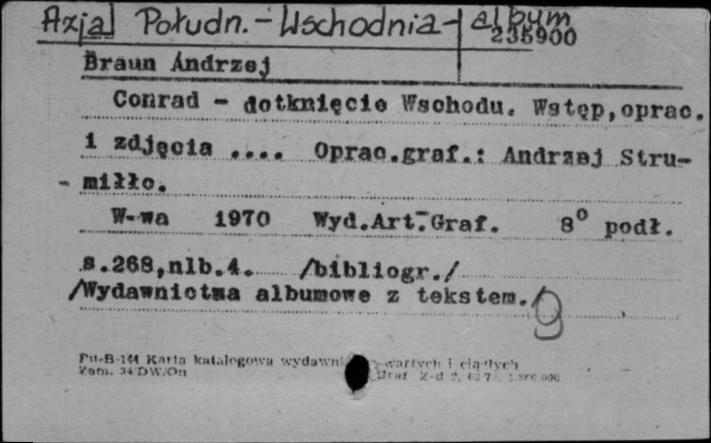 Azja Połudn.-Wschodnia-album
235900
Braun Andrzej
Conrad - dotknięcie Wschodu. Wstęp,oprac.
i zdjęcia .... Oprac.graf.: Andrzej Stru-
- miłło.
W-wa 1970 Wyd.Art.-Graf. 8° podł.
s.268,nlb.4. /bibliogr./
/Wydawnictwa albumowe z tekstem./
9
Pu-B-144 Karta katalogowa wydawni zwartych i ciągłych
Zam. 34/DW/On Graf. Z-d 2,